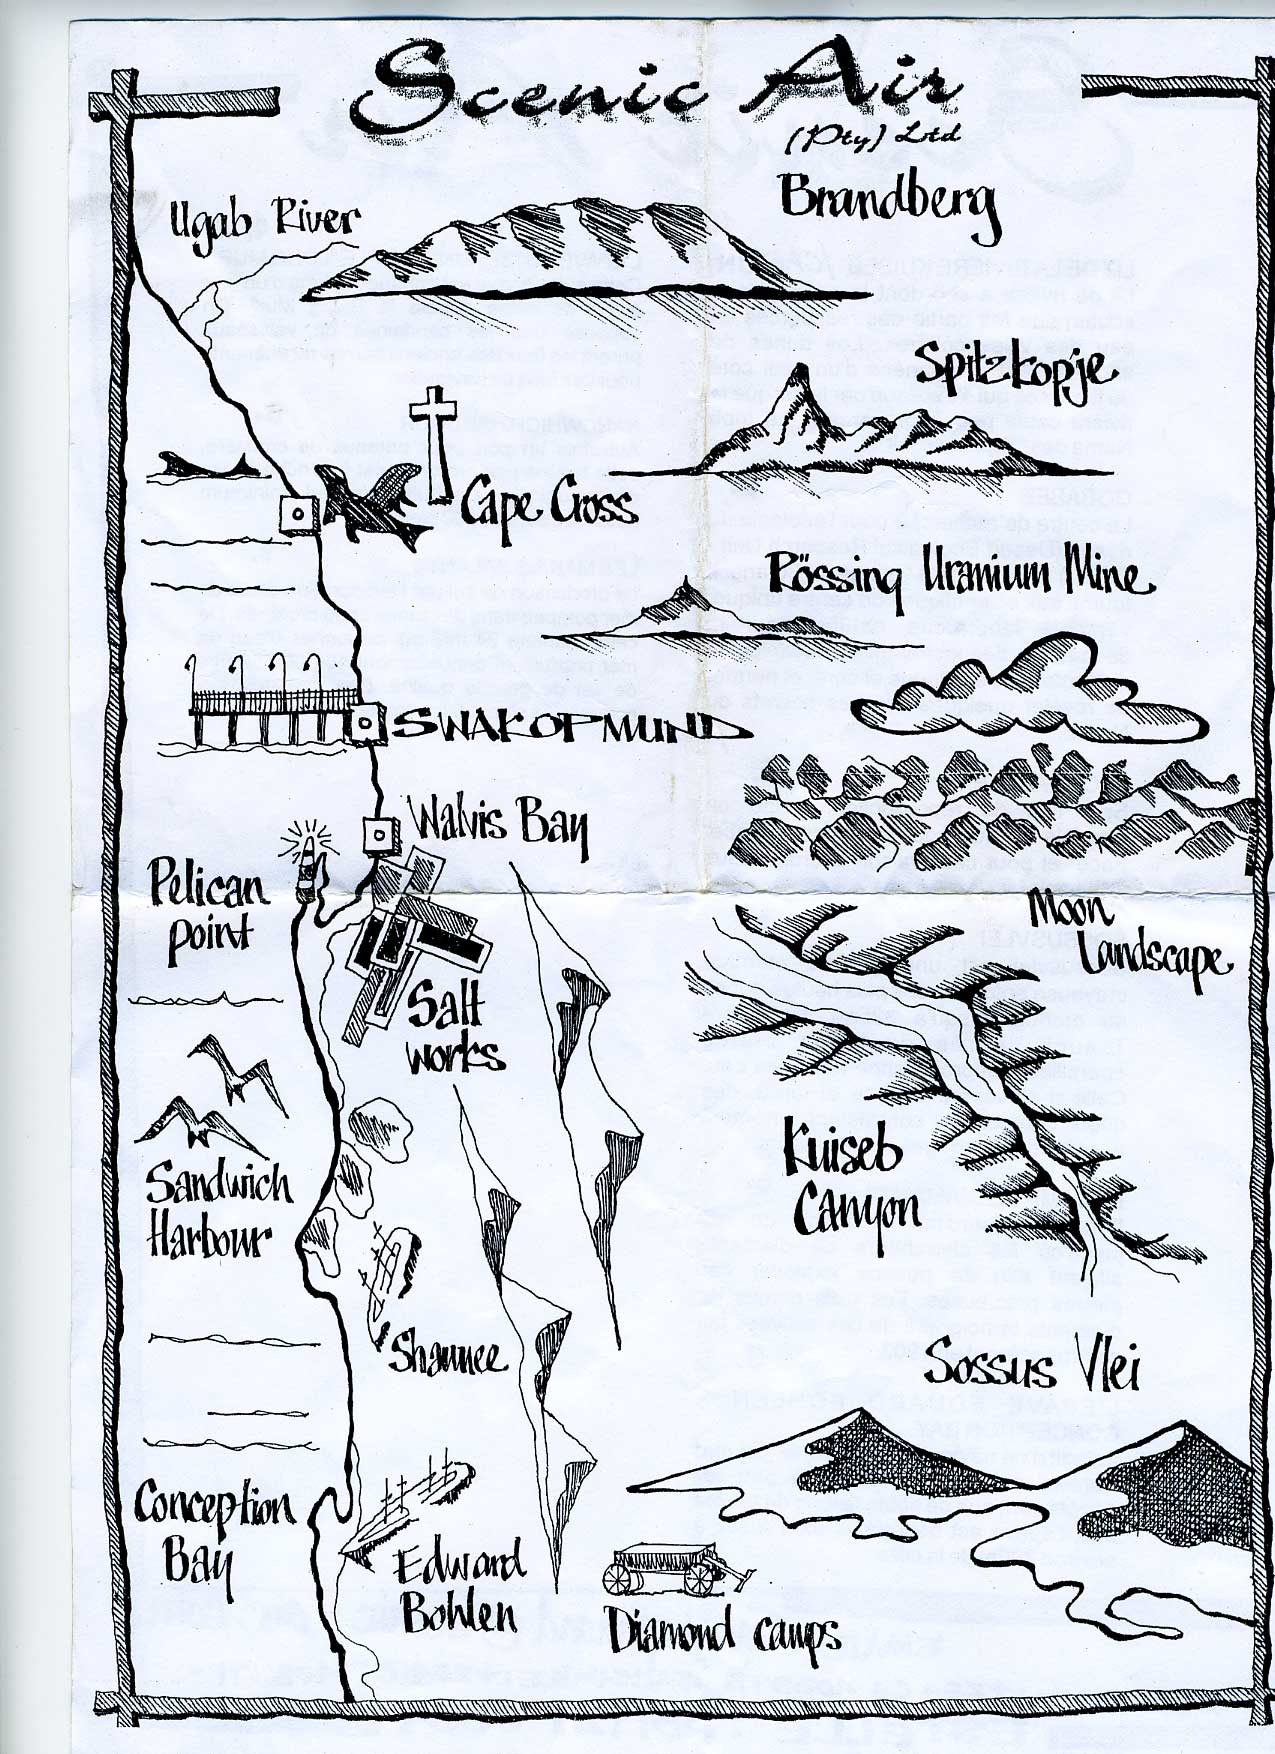 Scenic Air
(Pty) Ltd
Brandberg
Ugab River
Spitzkopje
Cape Cross
Rössing Uranium Mine
SWAKOPMUND
Walvis Bay
Pelican
point
Moon
Landscape
Salt
works
Kuiseb
Canyon
Sandwich
Harbour
Shaunee
Sossus Vlei
Conception
Bay
Edward
Bohlen
Diamond camps